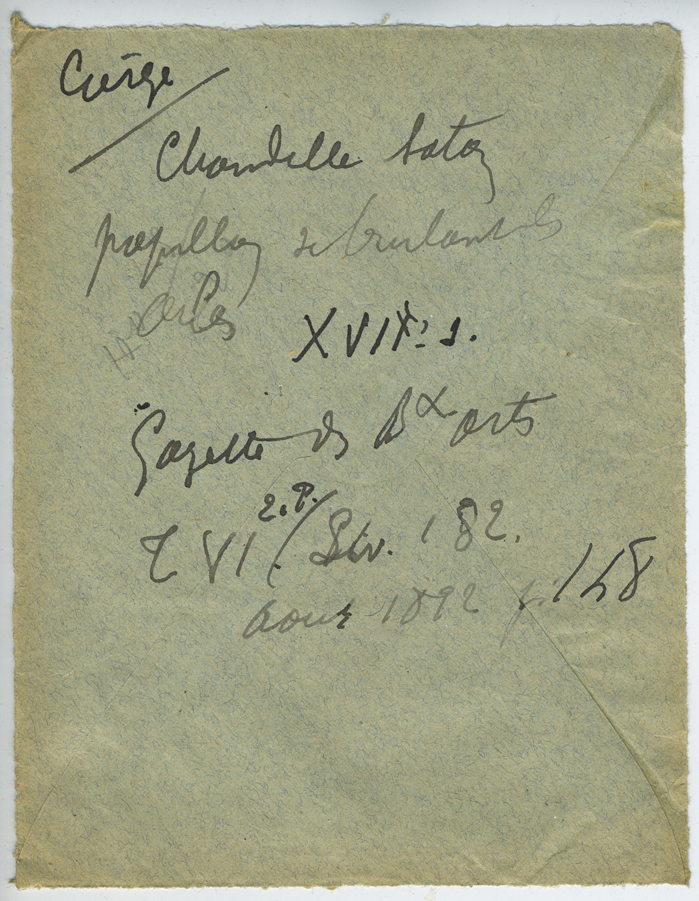 Cierge
Chandelle Satan
papillon se brulant les
ailes
XVIIe s.
Gazette des Bx arts
T VI. 2.P. / Liv. 182.
Aout 1892 p. 148